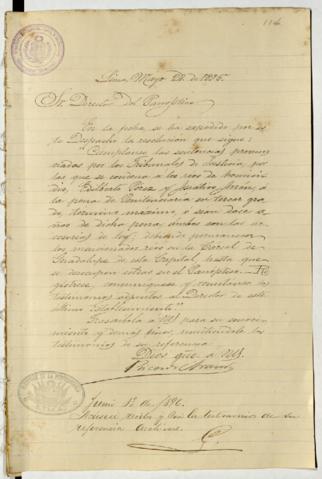 114
Lima, Mayo 29 de 1896.
Sr. Director del Panóptico
En la fecha, se ha expedido por es
te Despacho la resolución que sigue:
"Cúmplanse las sentencias pronun
ciadas por los Tribunales de Justicia, por
las que se condena a los reos de homici
dio, Gilberto Perez y
la pena de Penitenciaría en tercer gra
do, término máximo, o sean doce a
ños de dicha pena, ambos con las ac
cesorias de ley; debiendo permanecer
los mencionados reos en la Cárcel de
Guadalupe de esta Capital, hasta que
se desocupen celdas en el Panóptico. Re
gístrese, comuníquese y remítanse los
testimonios adjuntos al Director de este
último Establecimiento."
Trascríbola a US. para su conoci
miento y demás fines, remitiéndole los
testimonios de su referencia.
Dios gue. a US.
Junio 12 de 1896.
recibo y con los testimonios de su
referencia archívese.